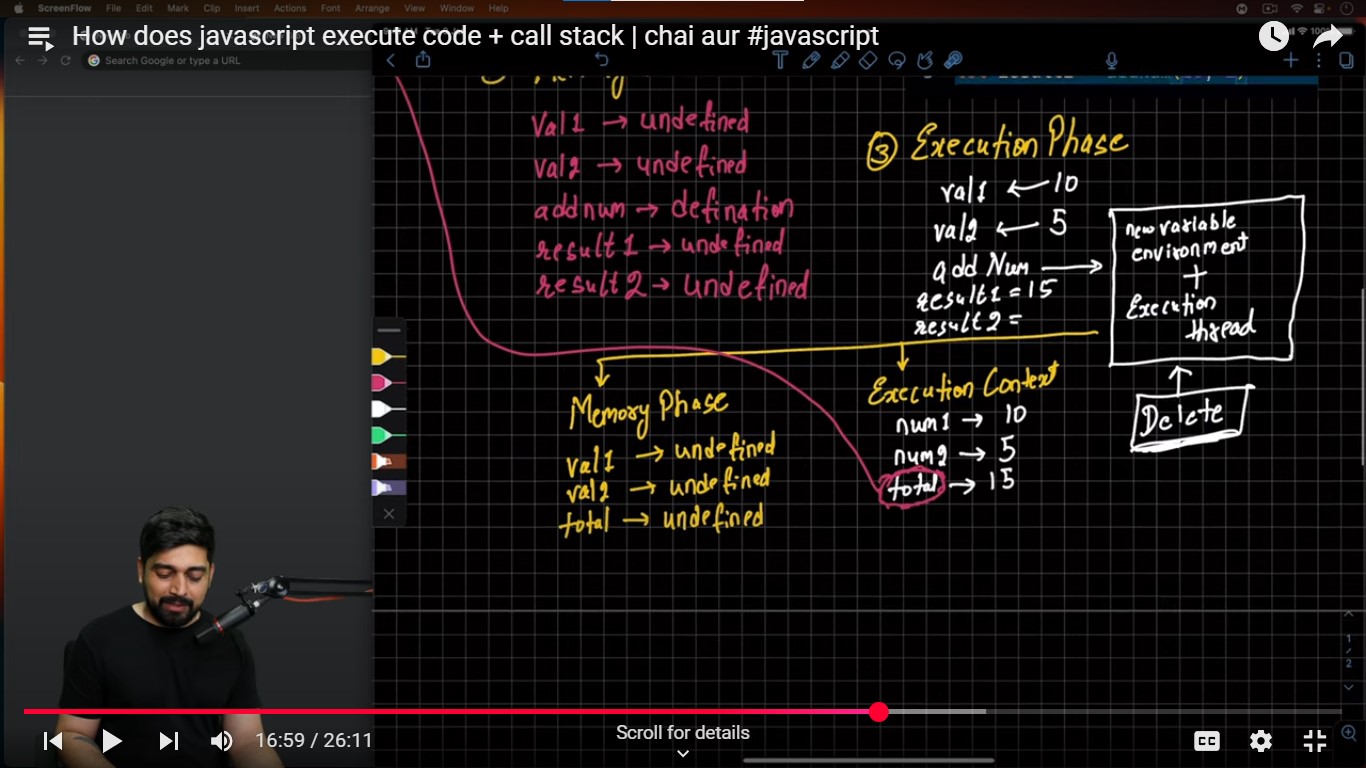 ScreenFlow File Edit Mark Clip Insert Actions Font Arrange View Window Help
How does javascript execute code + call stack | chai aur #javascript
Search Google or type a URL
Memory
Val1 → undefined
val2 → undefined
addnum → defination
result1 → undefined
result2 → undefined
3 Execution Phase
val1 ← 10
val2 ← 5
add Num →
result1 = 15
result2 =
new variable
environment
+
Execution
thread
Delete
Memory Phase
val1 → undefined
val2 → undefined
total → undefined
Execution Context
num1 → 10
num2 → 5
total → 15
1
/
2
16:59 / 26:11
Scroll for details
CC